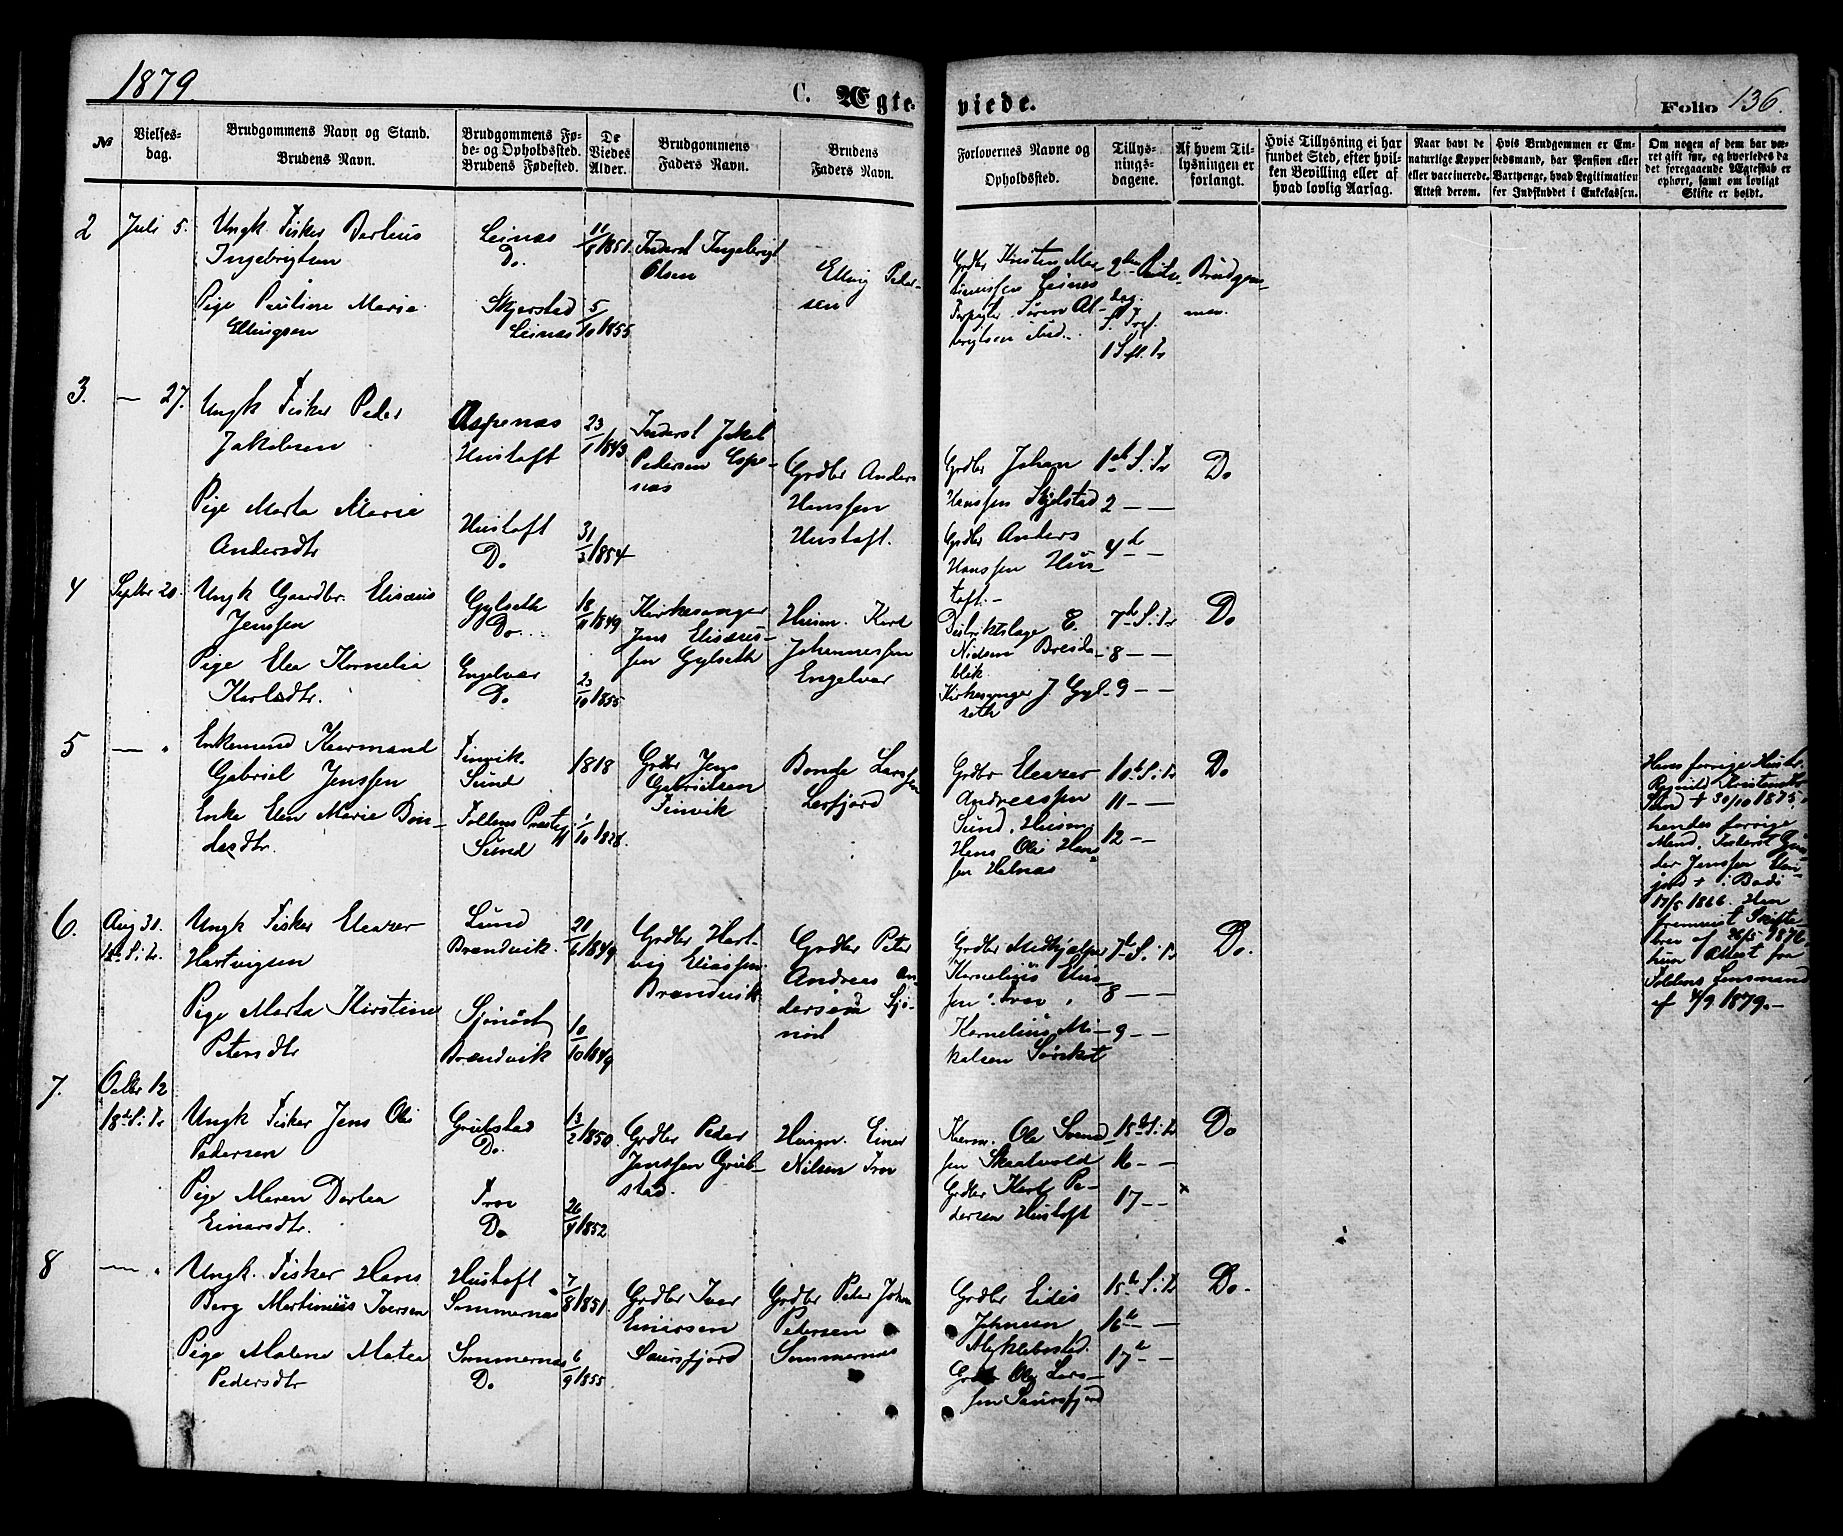 1879
C. Ægteviede.
Folio 136.
№
Vielsesdag.
Brudgommens Navn og Stand.
Brudens Navn.
Brudgommens Føde- og Opholdssted.
Brudens Fødested.
De Viedes Alder.
Brudgommens Faders Navn.
Brudens Faders Navn.
Forlovernes Navne og Opholdssted.
Tillysningsdagene.
Af hvem Tillysningen er forlangt.
Hvis Tillysning ei har fundet Sted, efter hvilken Bevilling eller af hvad lovlig Aarsag.
Naar havt de naturlige Kopper eller vaccinerede. Attest derom.
Hvis Brudgommen er Embedsmand, har Pension eller Vartpenge, hvad Legitimation for Indskuddet i Enkekassen.
Om nogen af dem har været gift før, og hvorledes da det foregaaende Ægteskab er ophørt, samt om lovligt Skifte er holdt.
2 Juli 5.
Ungk. Fisker Dorteus
Ingebrigtsen
Pige Pauline Marie
Ellingsen
Leinas
Do.
Skjerstad
Leinas
11/9 1851.
5/10 1855
Inderst Ingebrigt
Olsen
Elling Pedersen
Grdbr Kristen Martinussen Leinas
Søren Albrigtsen ibid.
Brudgommen.
3. — 27.
Ungk Fisker Peder
Jakobsen
Pige Marta Marie
Andersdtr
Aspenas
Hustoft
Hustoft
Do.
23/1 1843
31/3 1854
Inderst Jakob
Pedersen Espenas
Grdbr Anders
Hanssen
Hustoft.
Grdbr Johan
Hanssen Skjelstad
Grdbr Anders
Hanssen Hustoft.
1ste S. i Tr
2 — —
4de —
Do
4 Septbr 20.
Ungk Gaardbr. Elisæus
Jenssen
Pige Elea Kornelia
Karlsdtr.
Gylseth
Do.
Engelvær
Do.
18/11 1849
23/10 1855
Kirkesanger
Jens Elisæussen Gylseth
Husm. Karl
Johannessen
Engelvær
Distriktslæge E.
Nielsen Breidablik
Kirkesanger J Gylseth
7de S. i Tr
8 — —
9 — —
Do
5 — "
Enkemand Kaarmand
Gabriel Jenssen
Enke Elen Marie Bondesdtr.
Finvik.
Sund
Foldens Præstegj
Sund
1818
1/10 1828.
Grdbr Jens
Gabrielsen
Finvik
Bonde Larssen
Leefjord
Grdbr Eleazer
Andreassen
Sund, Husm
Hans Ole Hanssen Helnas
10de S. i Tr
11 — —
12 — —
Do
Hans forrige Hustr.
Ragnild Kristensdtr
Sund + 30/10 1875,
hendes forrige
Mand, Fisker
Jenssen
+ i Bodø
17/5 1866. Han
fremvist Skiftebrev af 26/5 1876
hun Attest fra
Foldens Lensmand
af 4/9 1879.—
6. Aug 31.
12te S. i Tr.
Ungk Fisker Eleazer
Hartvigsen
Pige Marta Kirstine
Petersdtr
Sund
Brændvik.
Sjønøst
Brændvik
20/6 1849
10/10 1849
Grdbr Hartvig Eliassen
Brændvik
Grdbr Peter
Andreas Andersen Sjønøst
Grdbr
Kornelius
Kornelius Mikalsen
7de S. i Tr
8 — —
9 — —
Do.
7. Octbr 12
18de S. i Tr
Ungk Fisker Jens Ole
Pedersen
Pige Maren Dortea
Einarsdtr.
Grübstad
Do.
Troe
Do
13/2 1850.
26/4 1852
Grdbr Peder
Jenssen Grübstad.
Husm. Einar
Nilsen Troe
Kaarm. Ole Svendsen Skaalvold
Grdbr Karl Pedersen Hustoft
15de S. i Tr
16 — —
17 — —
Do
8 — "
Ungk. Fisker Hans
Berg Martinius Iversen
Pige Malene Matea
Pedersdtr
Hustoft
Sommernas
Sommernas
Do
7/8 1851.
6/9 1855
Grdbr Iver
Einarsen
Saursfjord
Grdbr Peter Johan
Pedersen
Sommernas
Grdbr Edis
Johnsen
Myklebostad.
Grdbr Ole Larssen Saursfjord
15de S. i Tr
16de —
17de —
Do.